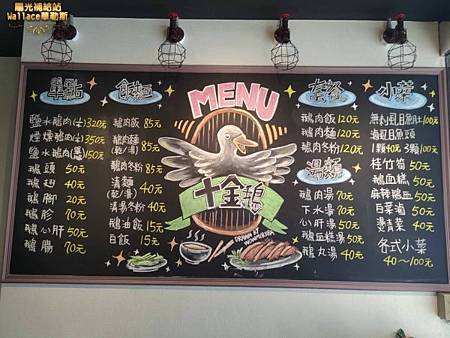 陽光補給站
Wallace華勒斯
單點
鹽水鵝肉(小)320元
煙燻鵝肉(小)350元
鹽水鵝肉(盤)150元
鵝頭 50元
鵝翅 40元
鵝腳 20元
鵝胗 70元
鵝心肝 50元
鵝腸 70元
飯麵
鵝肉飯 85元
鵝肉麵(乾/湯) 85元
鵝肉冬粉 85元
清麵(乾/湯) 40元
清湯冬粉 40元
鵝油飯 15元
白飯 15元
MENU
十全鵝
套餐
鵝肉飯 120元
鵝肉麵 120元
鵝肉冬粉 120元
湯類
鵝肉湯 70元
下水湯 70元
心肝湯 50元
鵝血糕湯 50元
鵝丸湯 40元
小菜
無刺虱目魚肚 100元
滷虱目魚頭
1顆40元 3顆100元
桂竹筍 50元
鵝血糕 50元
麻辣鵝血 50元
白菜滷 50元
燙青菜 40元
各式小菜
40~100元